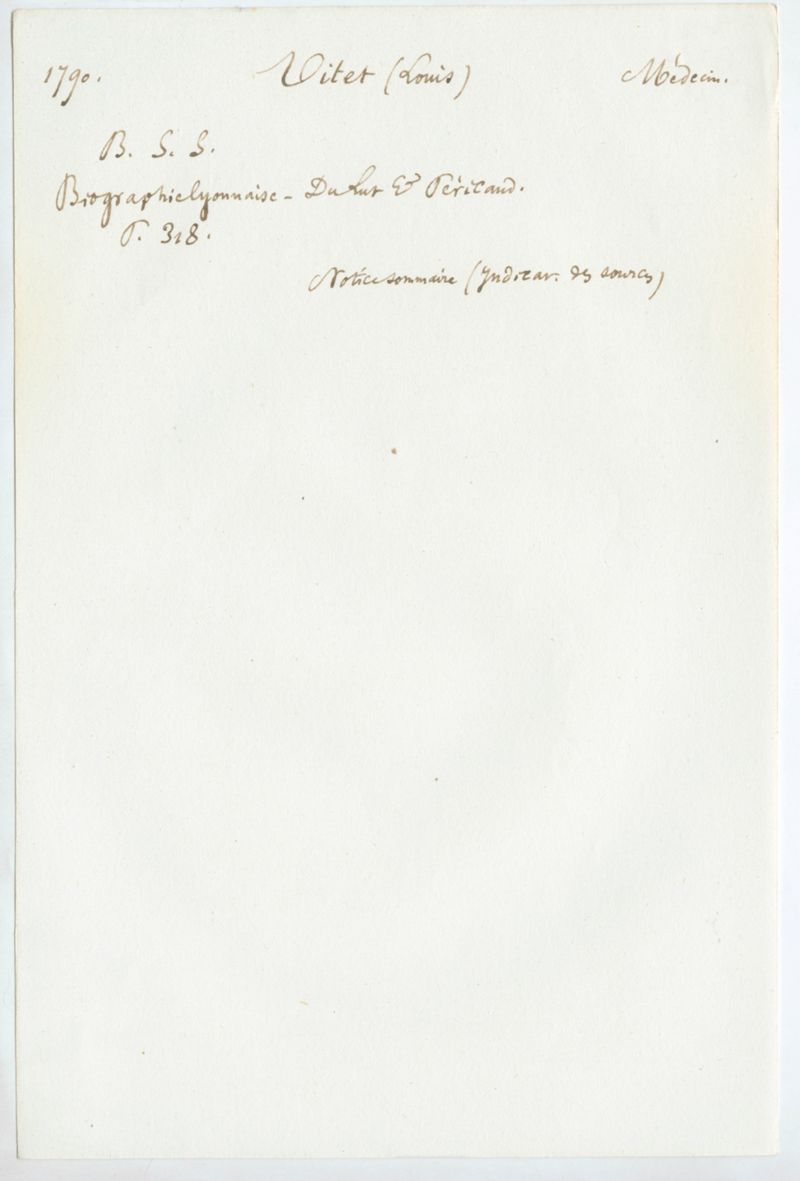 1790. Vitet (Louis) Médecin.
B. S. S.
Biographie lyonnaise - Du Lut & Péricaud.
P. 318.
Notice sommaire (Yndicat. des sources)